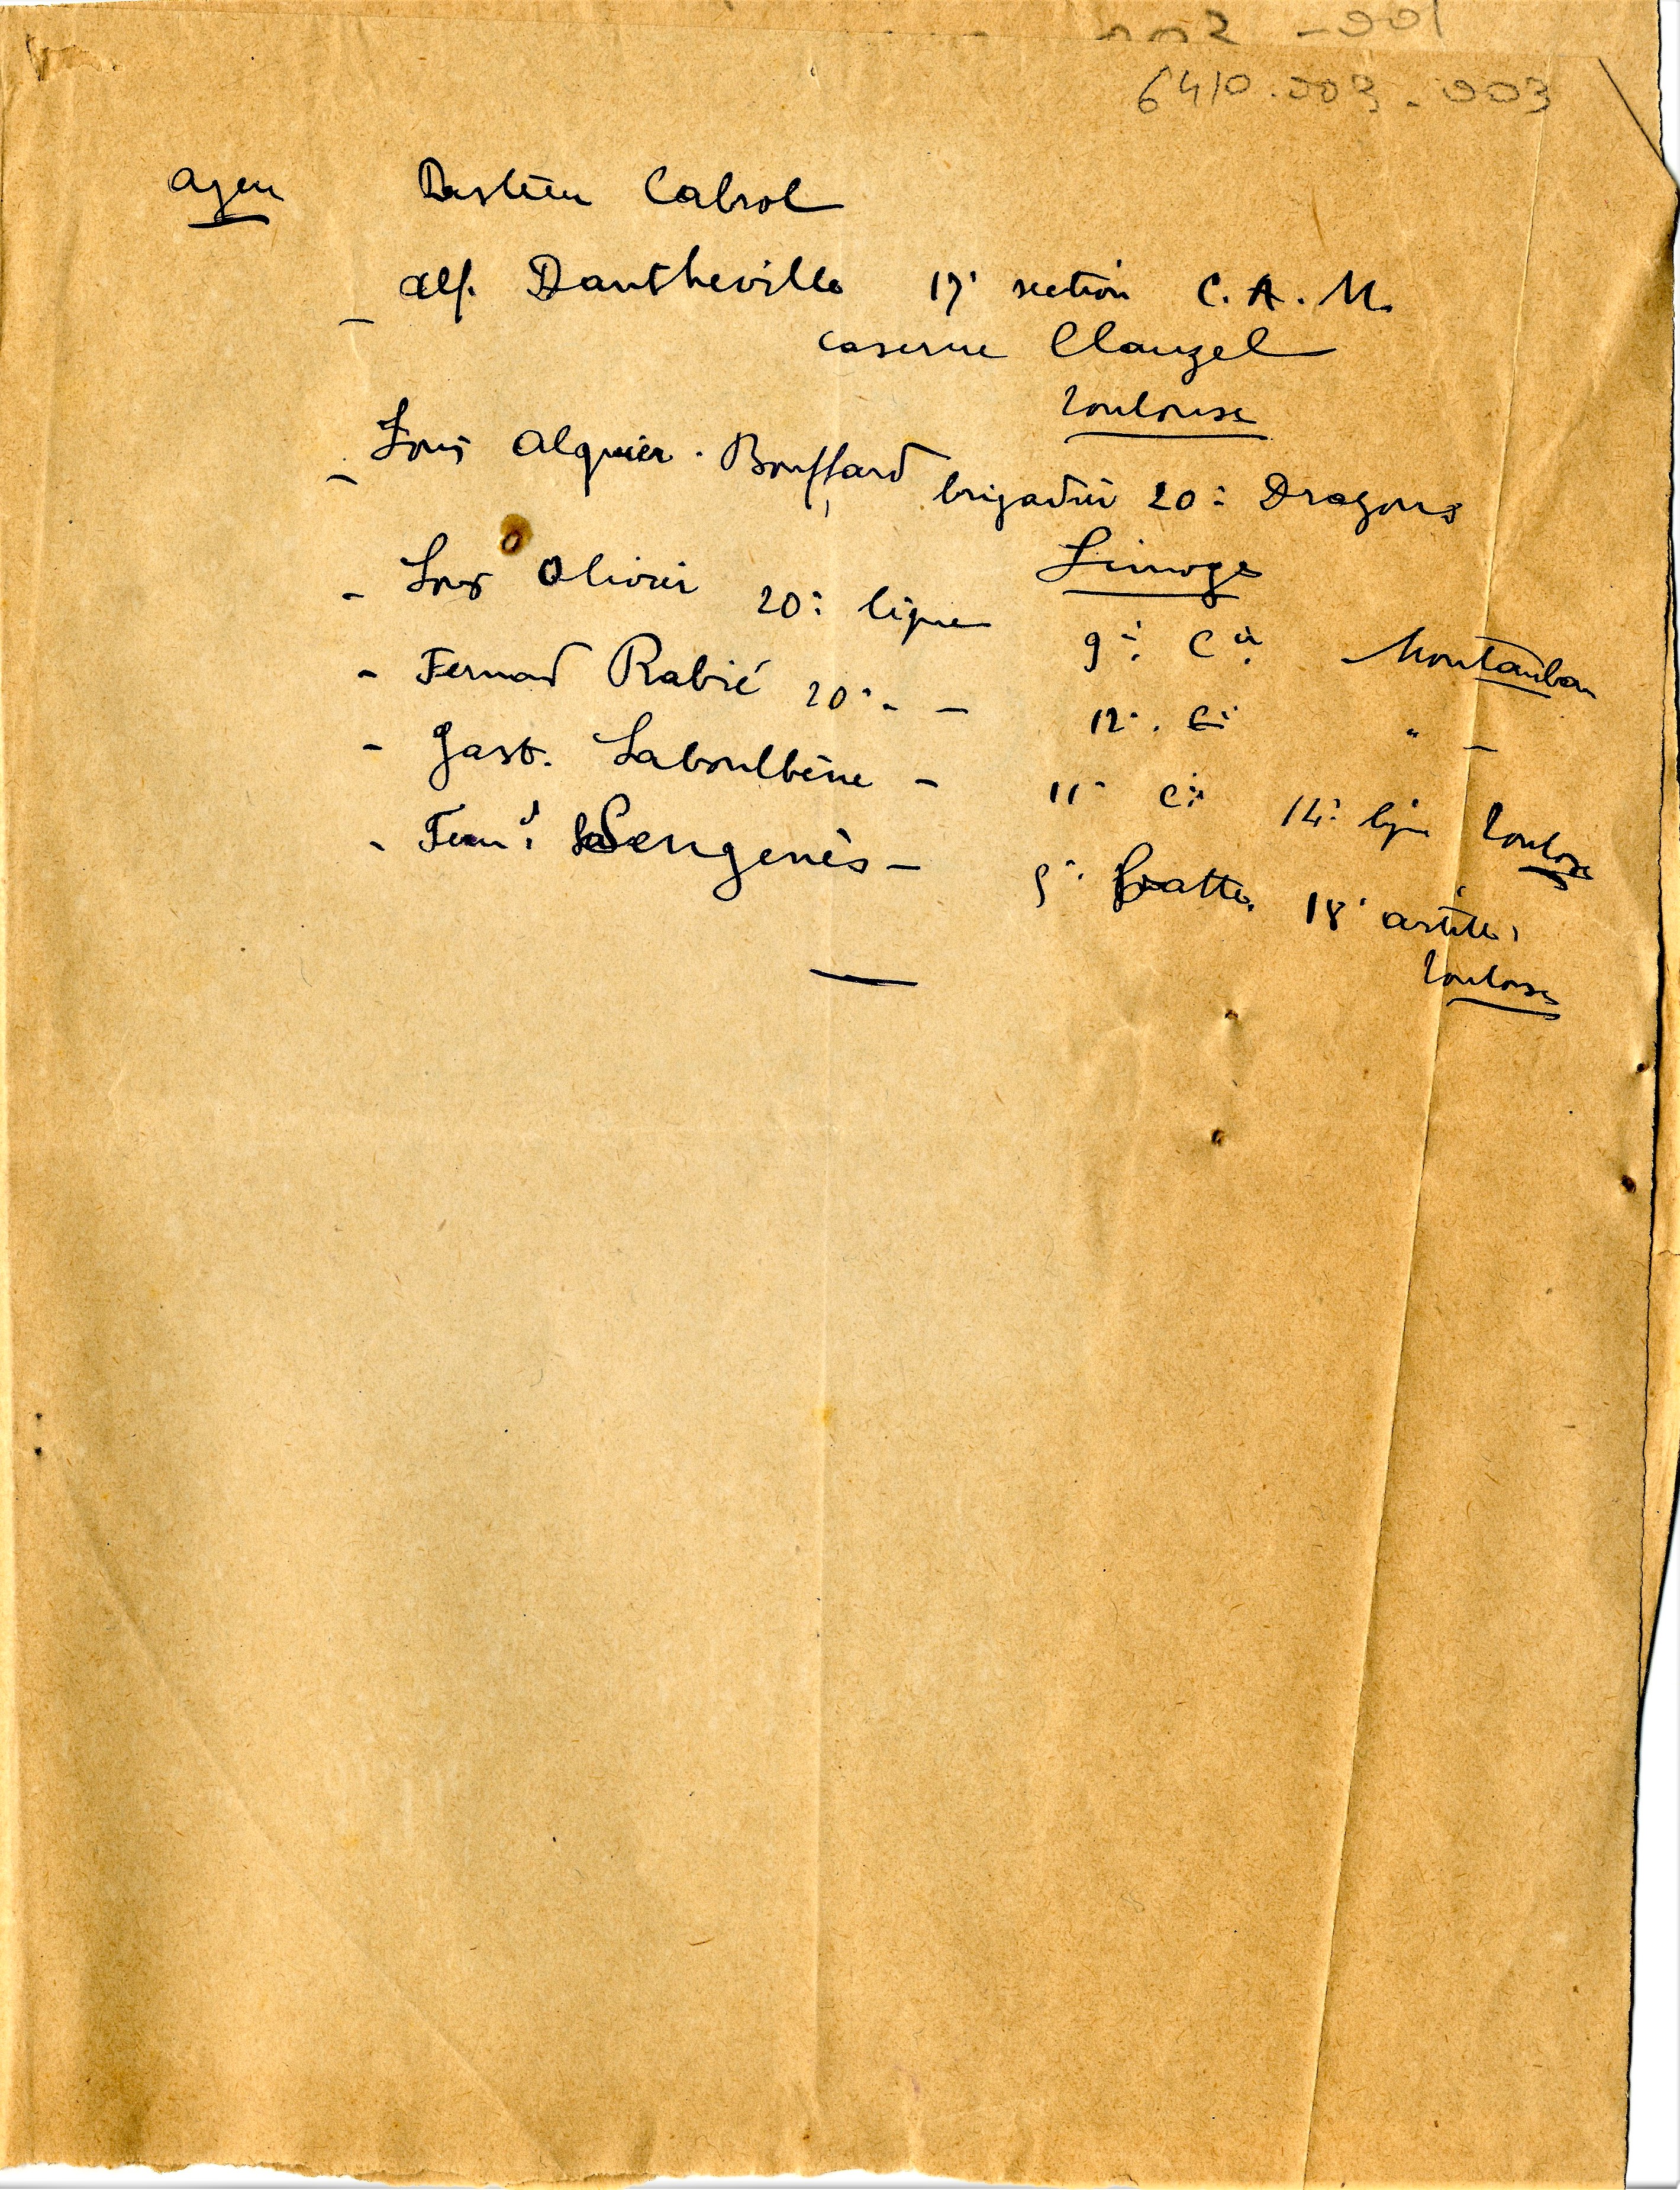 6410.003.003
Agen Cabrol
- Alf. Dantheville 17e section C. A. M.
caserne Clauzel
Toulouse
- Louis Alquier-Bouffard brigadier 20e Dragons
Limoge
- Louis Olivier 20e ligne 9e Cie Montauban
- Fernand Rabié 20e - - 12e Cie " -
- Gast. Laboulbène - 11e Cie 14e ligne Toulouse
- Fernd Sengenès - Batte. 18e artlle.
Toulouse